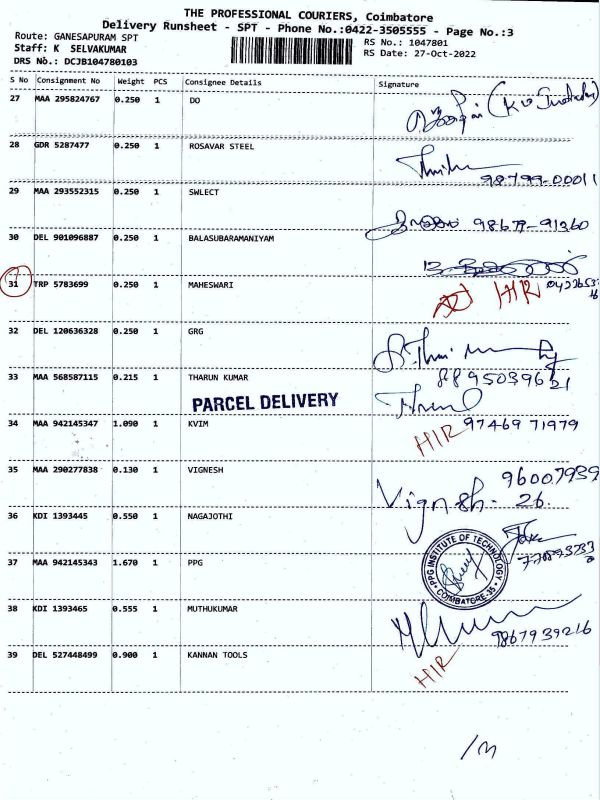 THE PROFESSIONAL COURIERS, Coimbatore
Delivery Runsheet - SPT - Phone No.:0422-3505555 - Page No.:3
Route: GANESAPURAM SPT
RS No.: 1047801
Staff: K SELVAKUMAR
RS Date: 27-Oct-2022
DRS No.: DCJB104780103
S No Consignment No Weight PCS Consignee Details Signature
27 MAA 295824767 0.250 1 DO
28 GDR 5287477 0.250 1 ROSAVAR STEEL
98799-00011
29 MAA 293552315 0.250 1 SWLECT
98679-91360
30 DEL 901096887 0.250 1 BALASUBARAMANIYAM
31 TRP 5783699 0.250 1 MAHESWARI HIR
32 DEL 120636328 0.250 1 GRG
33 MAA 568587115 0.215 1 THARUN KUMAR
PARCEL DELIVERY
34 MAA 942145347 1.090 1 KVIM HIR 97469 71979
35 MAA 290277838 0.130 1 VIGNESH 96007939
Vignesh. 26.
36 KDI 1393445 0.550 1 NAGAJOTHI
37 MAA 942145343 1.670 1 PPG
PPG INSTITUTE OF TECHNOLOGY
COIMBATORE-35
38 KDI 1393465 0.555 1 MUTHUKUMAR
9867939216
39 DEL 527448499 0.900 1 KANNAN TOOLS HIR